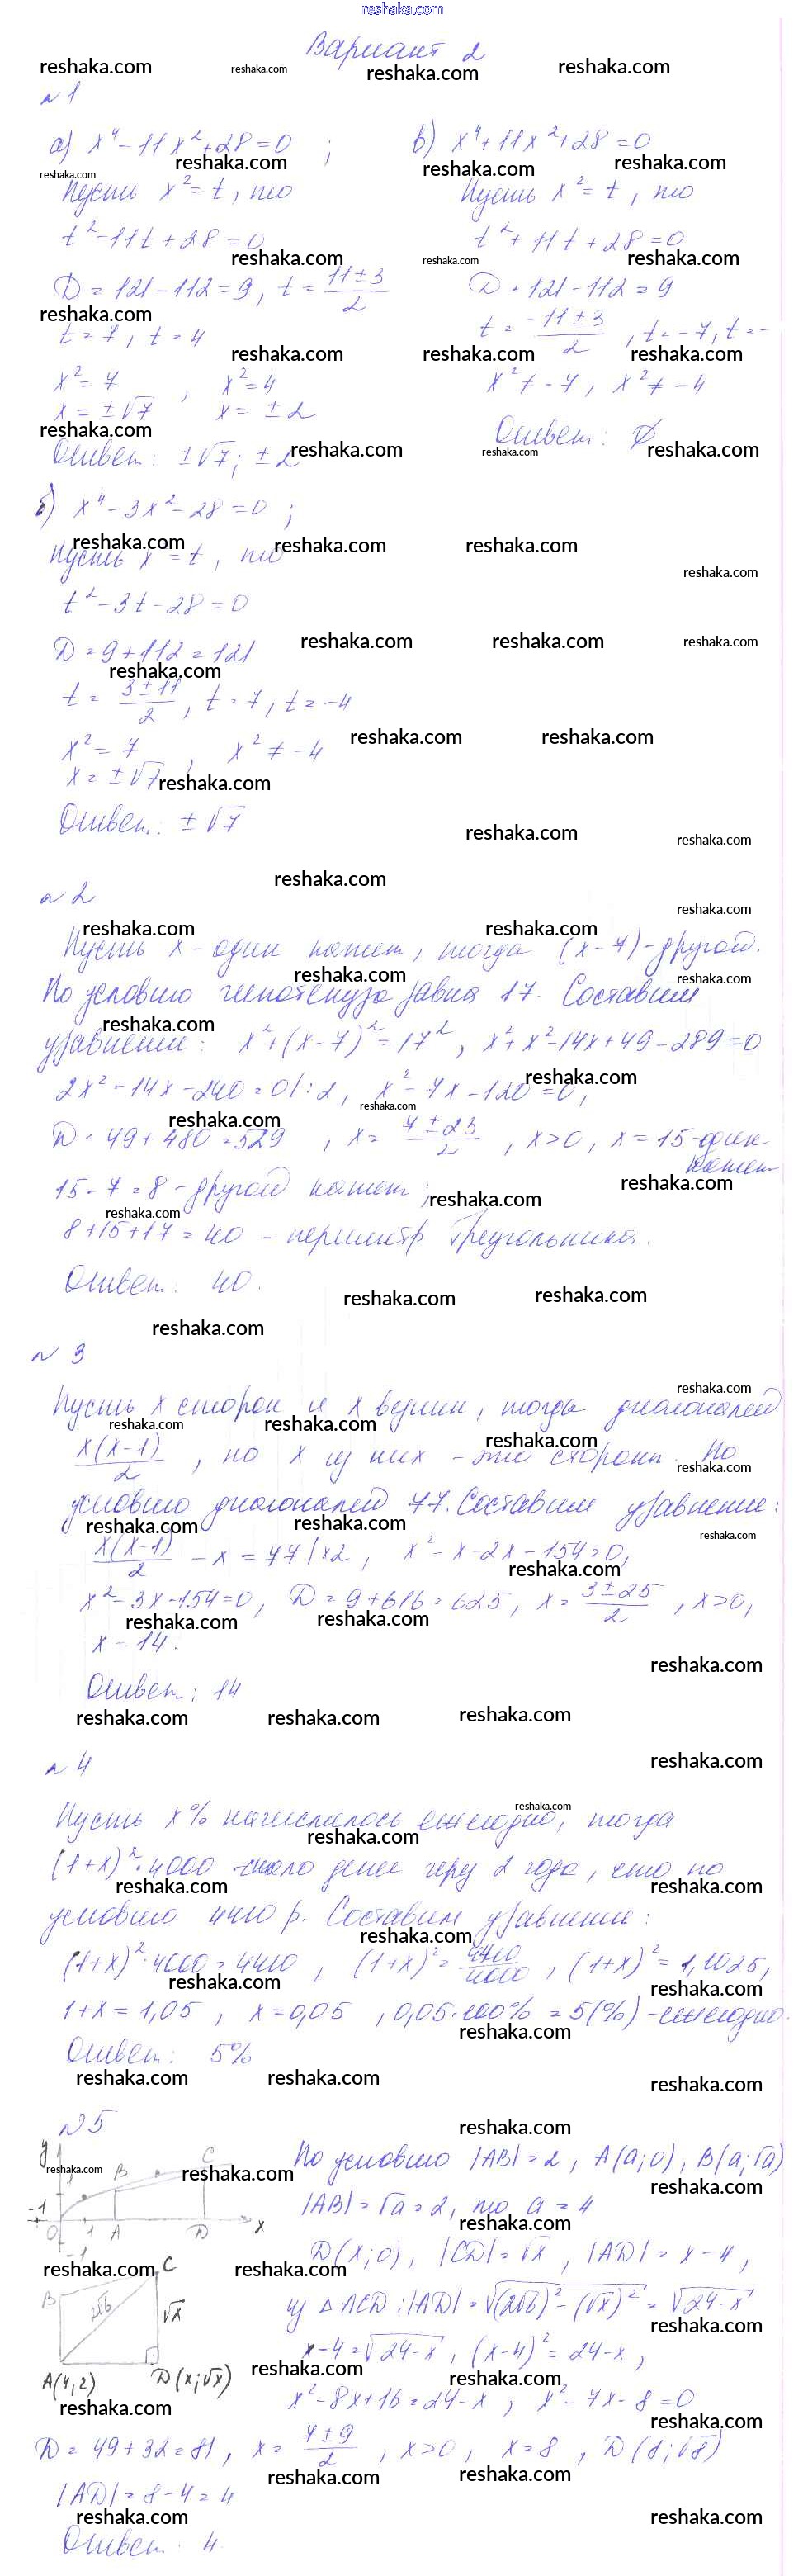 reshaka.com
Вариант 2
№1
а) x⁴-11x²+28=0 ;
Пусть x²=t, то
t²-11t+28=0
D=121-112=9, t=(11±3)/2
t=7, t=4
x²=7 , x²=4
x=±√7 x=±2
Ответ: ±√7; ±2
в) x⁴+11x²+28=0
Пусть x²=t, то
t²+11t+28=0
D=121-112=9
t=(-11±3)/2, t=-7, t=-
x²≠-7, x²≠-4
Ответ: ∅
б) x⁴-3x²-28=0 ;
Пусть x²=t, то
t²-3t-28=0
D=9+112=121
t=(3±11)/2, t=7, t=-4
x²=7 , x²≠-4
x=±√7
Ответ: ±√7
№2
Пусть x-один катет, тогда (x-7)-другой.
По условию гипотенуза равна 17. Составим
уравнение: x²+(x-7)²=17², x²+x²-14x+49-289=0
2x²-14x-240=0|:2, x²-7x-120=0,
D=49+480=529, x=(7±23)/2, x>0, x=15-один
катет
15-7=8-другой катет;
8+15+17=40 - периметр треугольника.
Ответ: 40.
№3
Пусть x сторон и x вершин, тогда диагоналей
x(x-1)/2, но x из них - это стороны. По
условию диагоналей 77. Составим уравнение:
x(x-1)/2 - x = 77|×2, x²-x-2x-154=0,
x²-3x-154=0, D=9+616=625, x=(3±25)/2, x>0,
x=14.
Ответ: 14
№4
Пусть x% начислялось ежегодно, тогда
(1+x)²·4000 стало денег через 2 года, что по
условию 4410 р. Составим уравнение:
(1+x)²·4000=4410, (1+x)²=4410/4000, (1+x)²=1,1025,
1+x=1,05, x=0,05, 0,05·100%=5(%)-ежегодно.
Ответ: 5%
№5
y
B
C
-1
0
1
A
D
x
-1
По условию |AB|=2, A(a;0), B(a;√a)
|AB|=√a=2, то a=4
D(x;0), |CD|=√x, |AD|=x-4,
из △ACD: |AD|=√((2√6)²-(√x)²)=√(24-x)
x-4=√(24-x), (x-4)²=24-x,
x²-8x+16=24-x, x²-7x-8=0
B
C
2√6
√x
A(4,2)
D(x;√x)
D=49+32=81, x=(7±9)/2, x>0, x=8, D(8;√8)
|AD|=8-4=4
Ответ: 4.